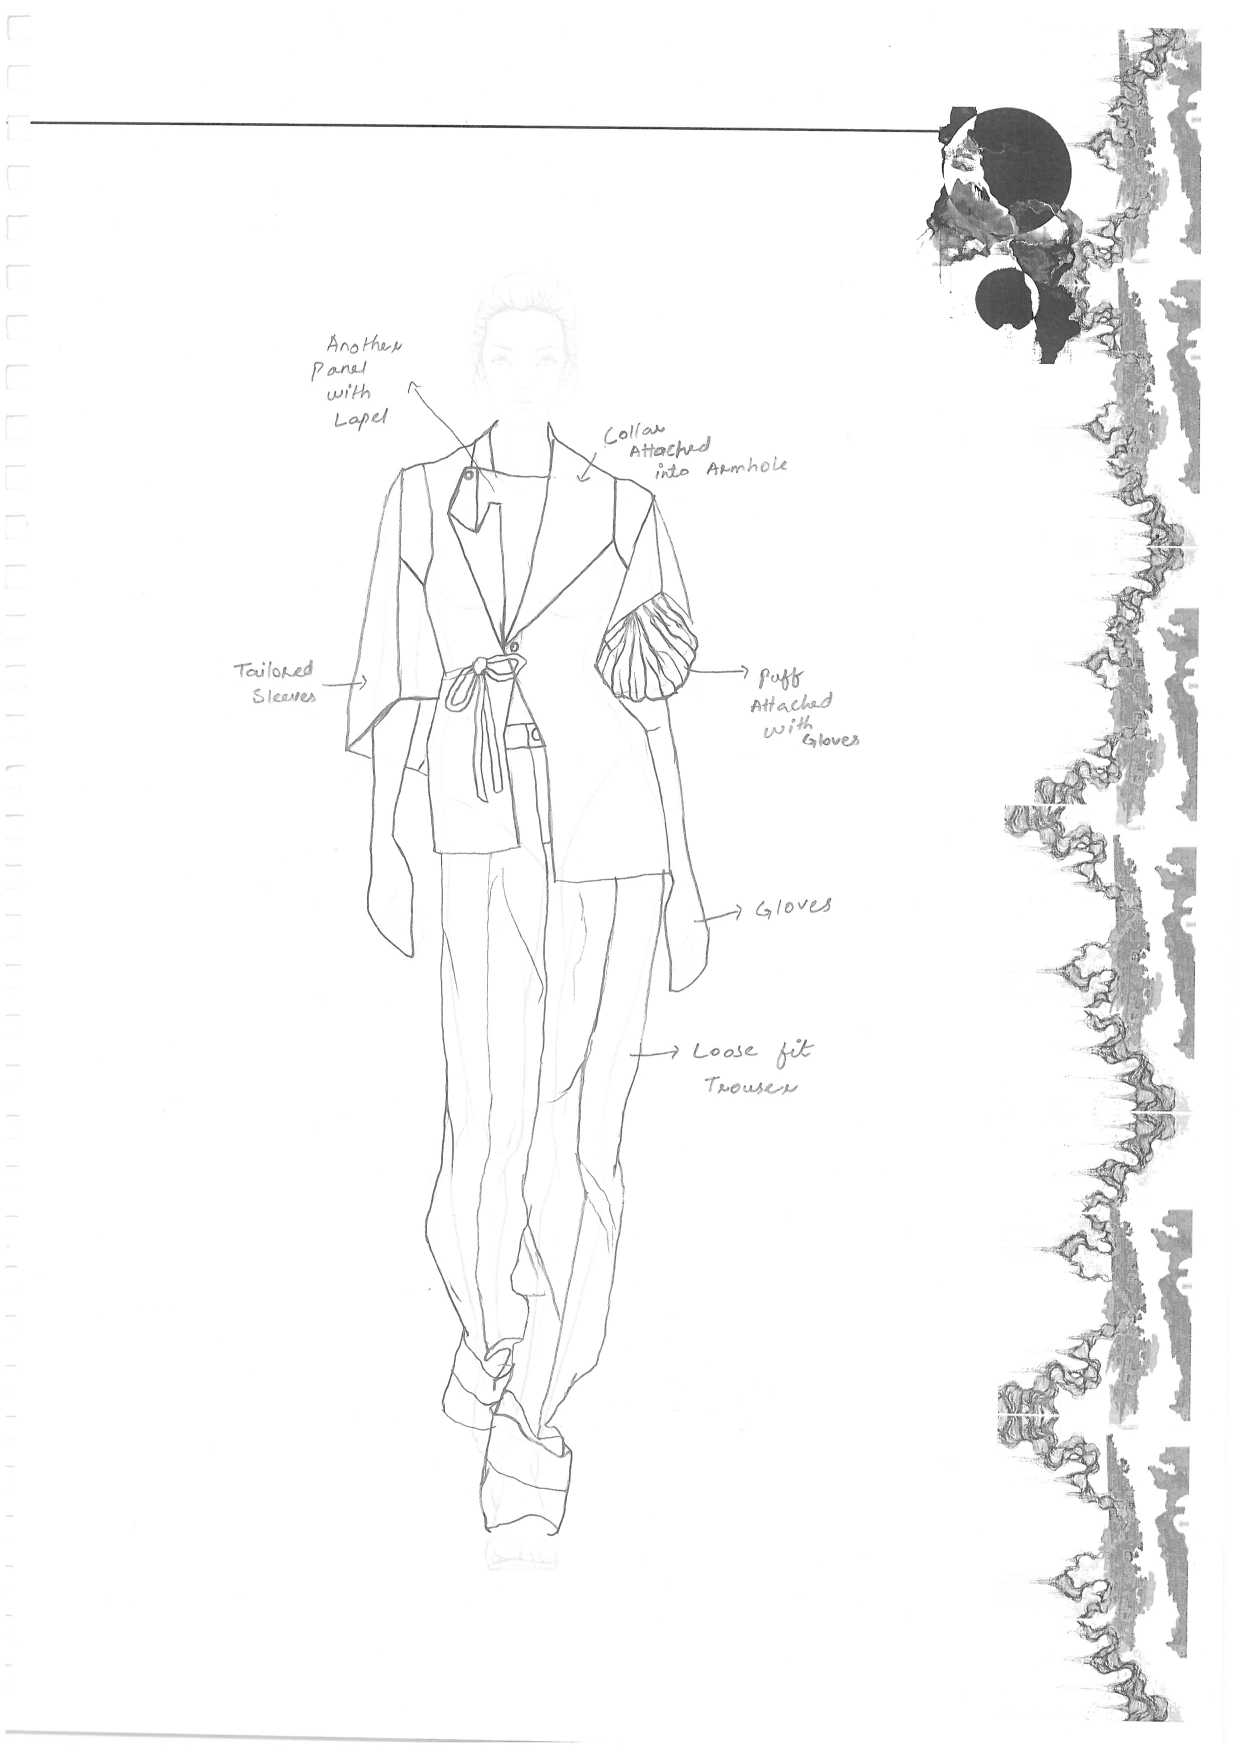 Another
Panel
with
Lapel
Collar
Attached
into Armhole
Tailored
Sleeves
Puff
Attached
with
Gloves
Gloves
Loose fit
Trouser